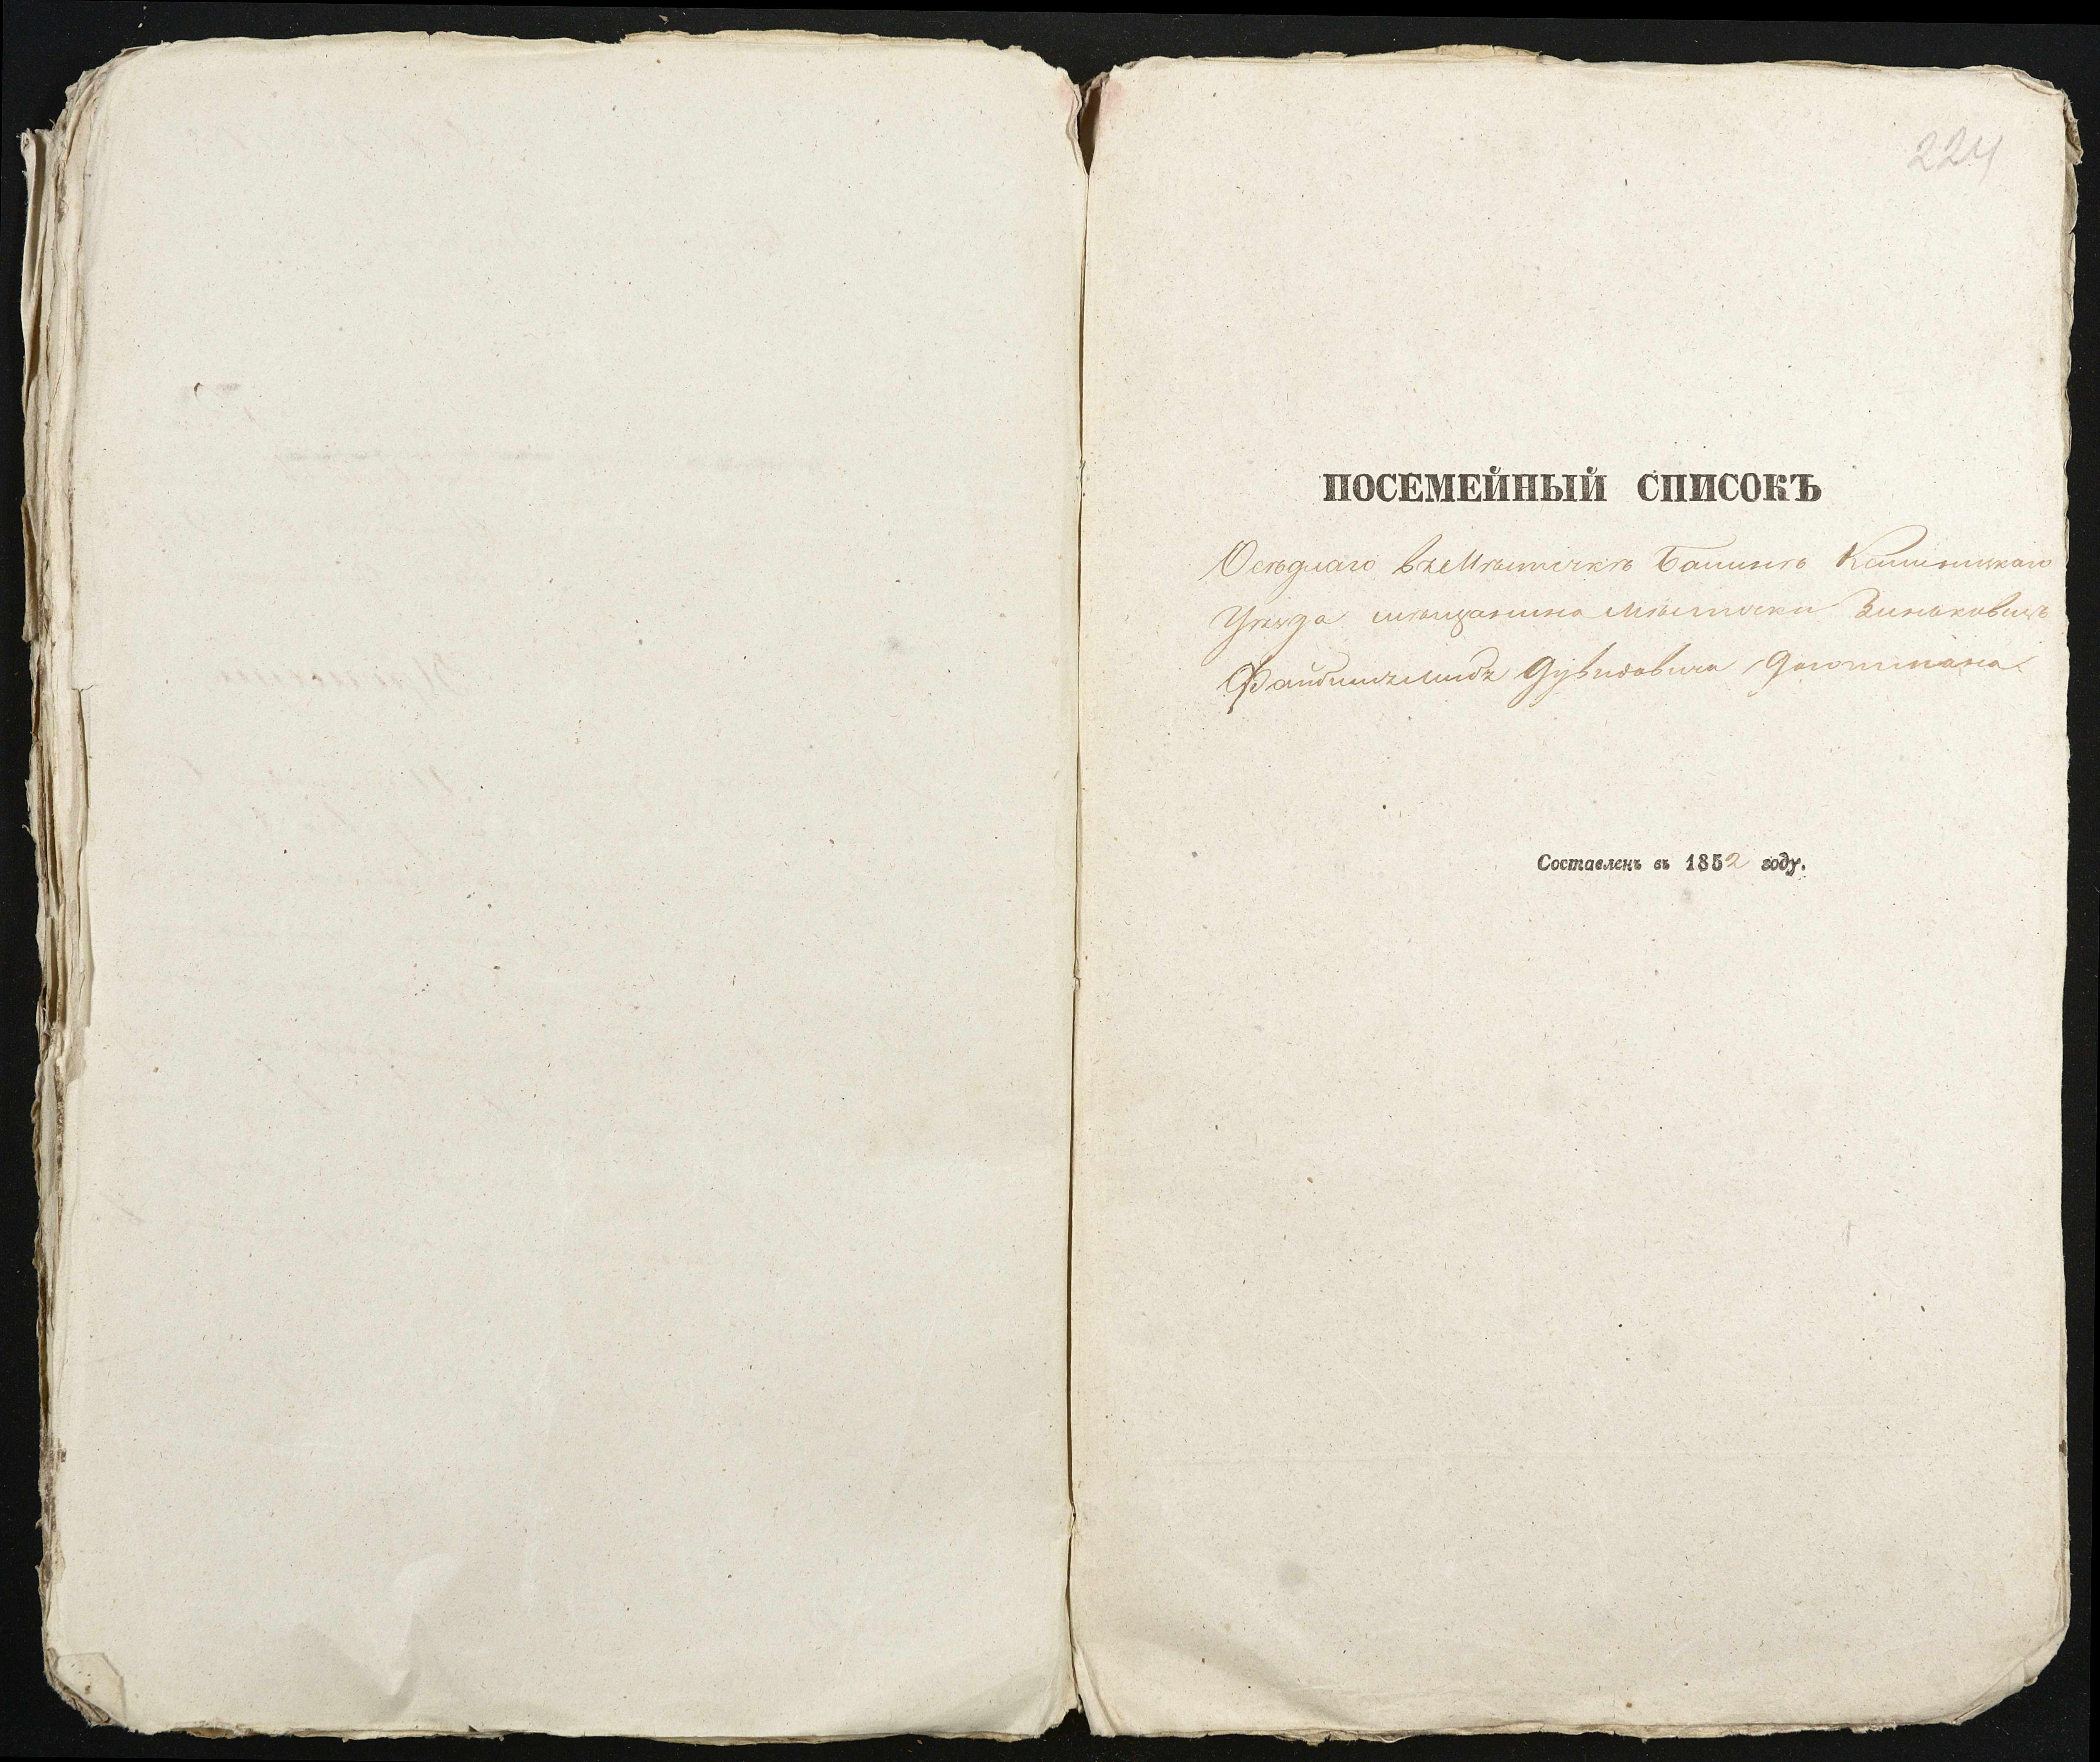 224
ПОСЕМЕЙНЫЙ СПИСОКЪ
Осѣдлаго въ Мѣстечкѣ Балинѣ Каменецкаго
Уѣзда мѣщанина Мѣстечка Зиньковецъ
Дувидовича
Составленъ въ 1852 году.